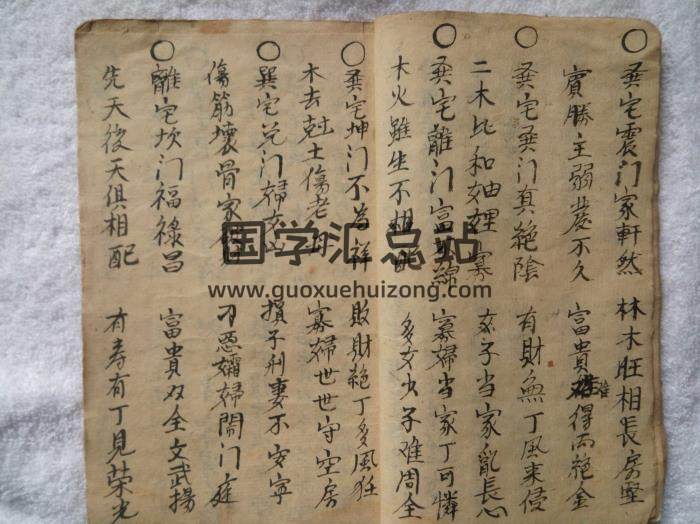 ○巽宅震门家軒然 林木旺相長房堅
賓勝主弱發不久 富貴难得而絶金
○巽宅巽门真絶陰 有財無丁風来侵
二木比和妯娌寡 女子当家亂長心
○巽宅離门富綿 寡婦当家丁可憐
木火雖生不相 多女少子难周全
○巽宅坤门不為祥 敗財絶丁多風狂
木去尅土傷老母 寡婦世世守空房
○巽宅兑门婦女凶 損子刑妻不安寧
傷筋壞骨家 刁惡孀婦鬧门庭
○離宅坎门福禄昌 富貴双全文武揚
先天後天俱相配 有寿有丁見荣光
国学汇总站
www.guoxuehuizong.com